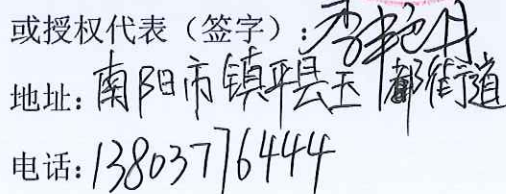 或授权代表（签字）：李艳丹
地址：南阳市镇平县玉都街道
电话：13803776444